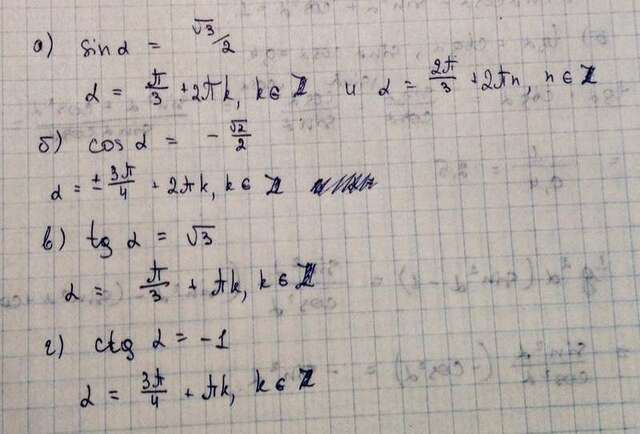 а) sin α = √3/2
α = π/3 + 2πk, k ∈ Z и α = 2π/3 + 2πn, n ∈ Z
б) cos α = - √2/2
α = ± 3π/4 + 2πk, k ∈ Z
в) tg α = √3
α = π/3 + πk, k ∈ Z
г) ctg α = -1
α = 3π/4 + πk, k ∈ Z